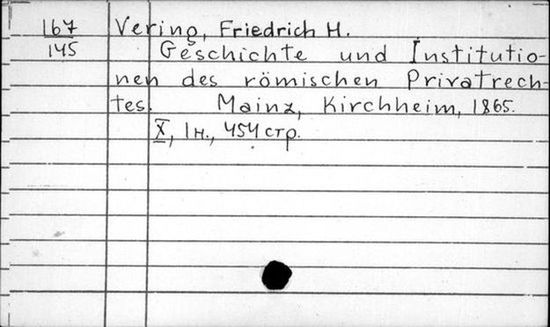 167 Vering, Friedrich H.
145 Geschichte und Institutio-
nen des römischen Privatrech-
tes. Mainz, Kirchheim, 1865.
X, 1 н., 454 стр.